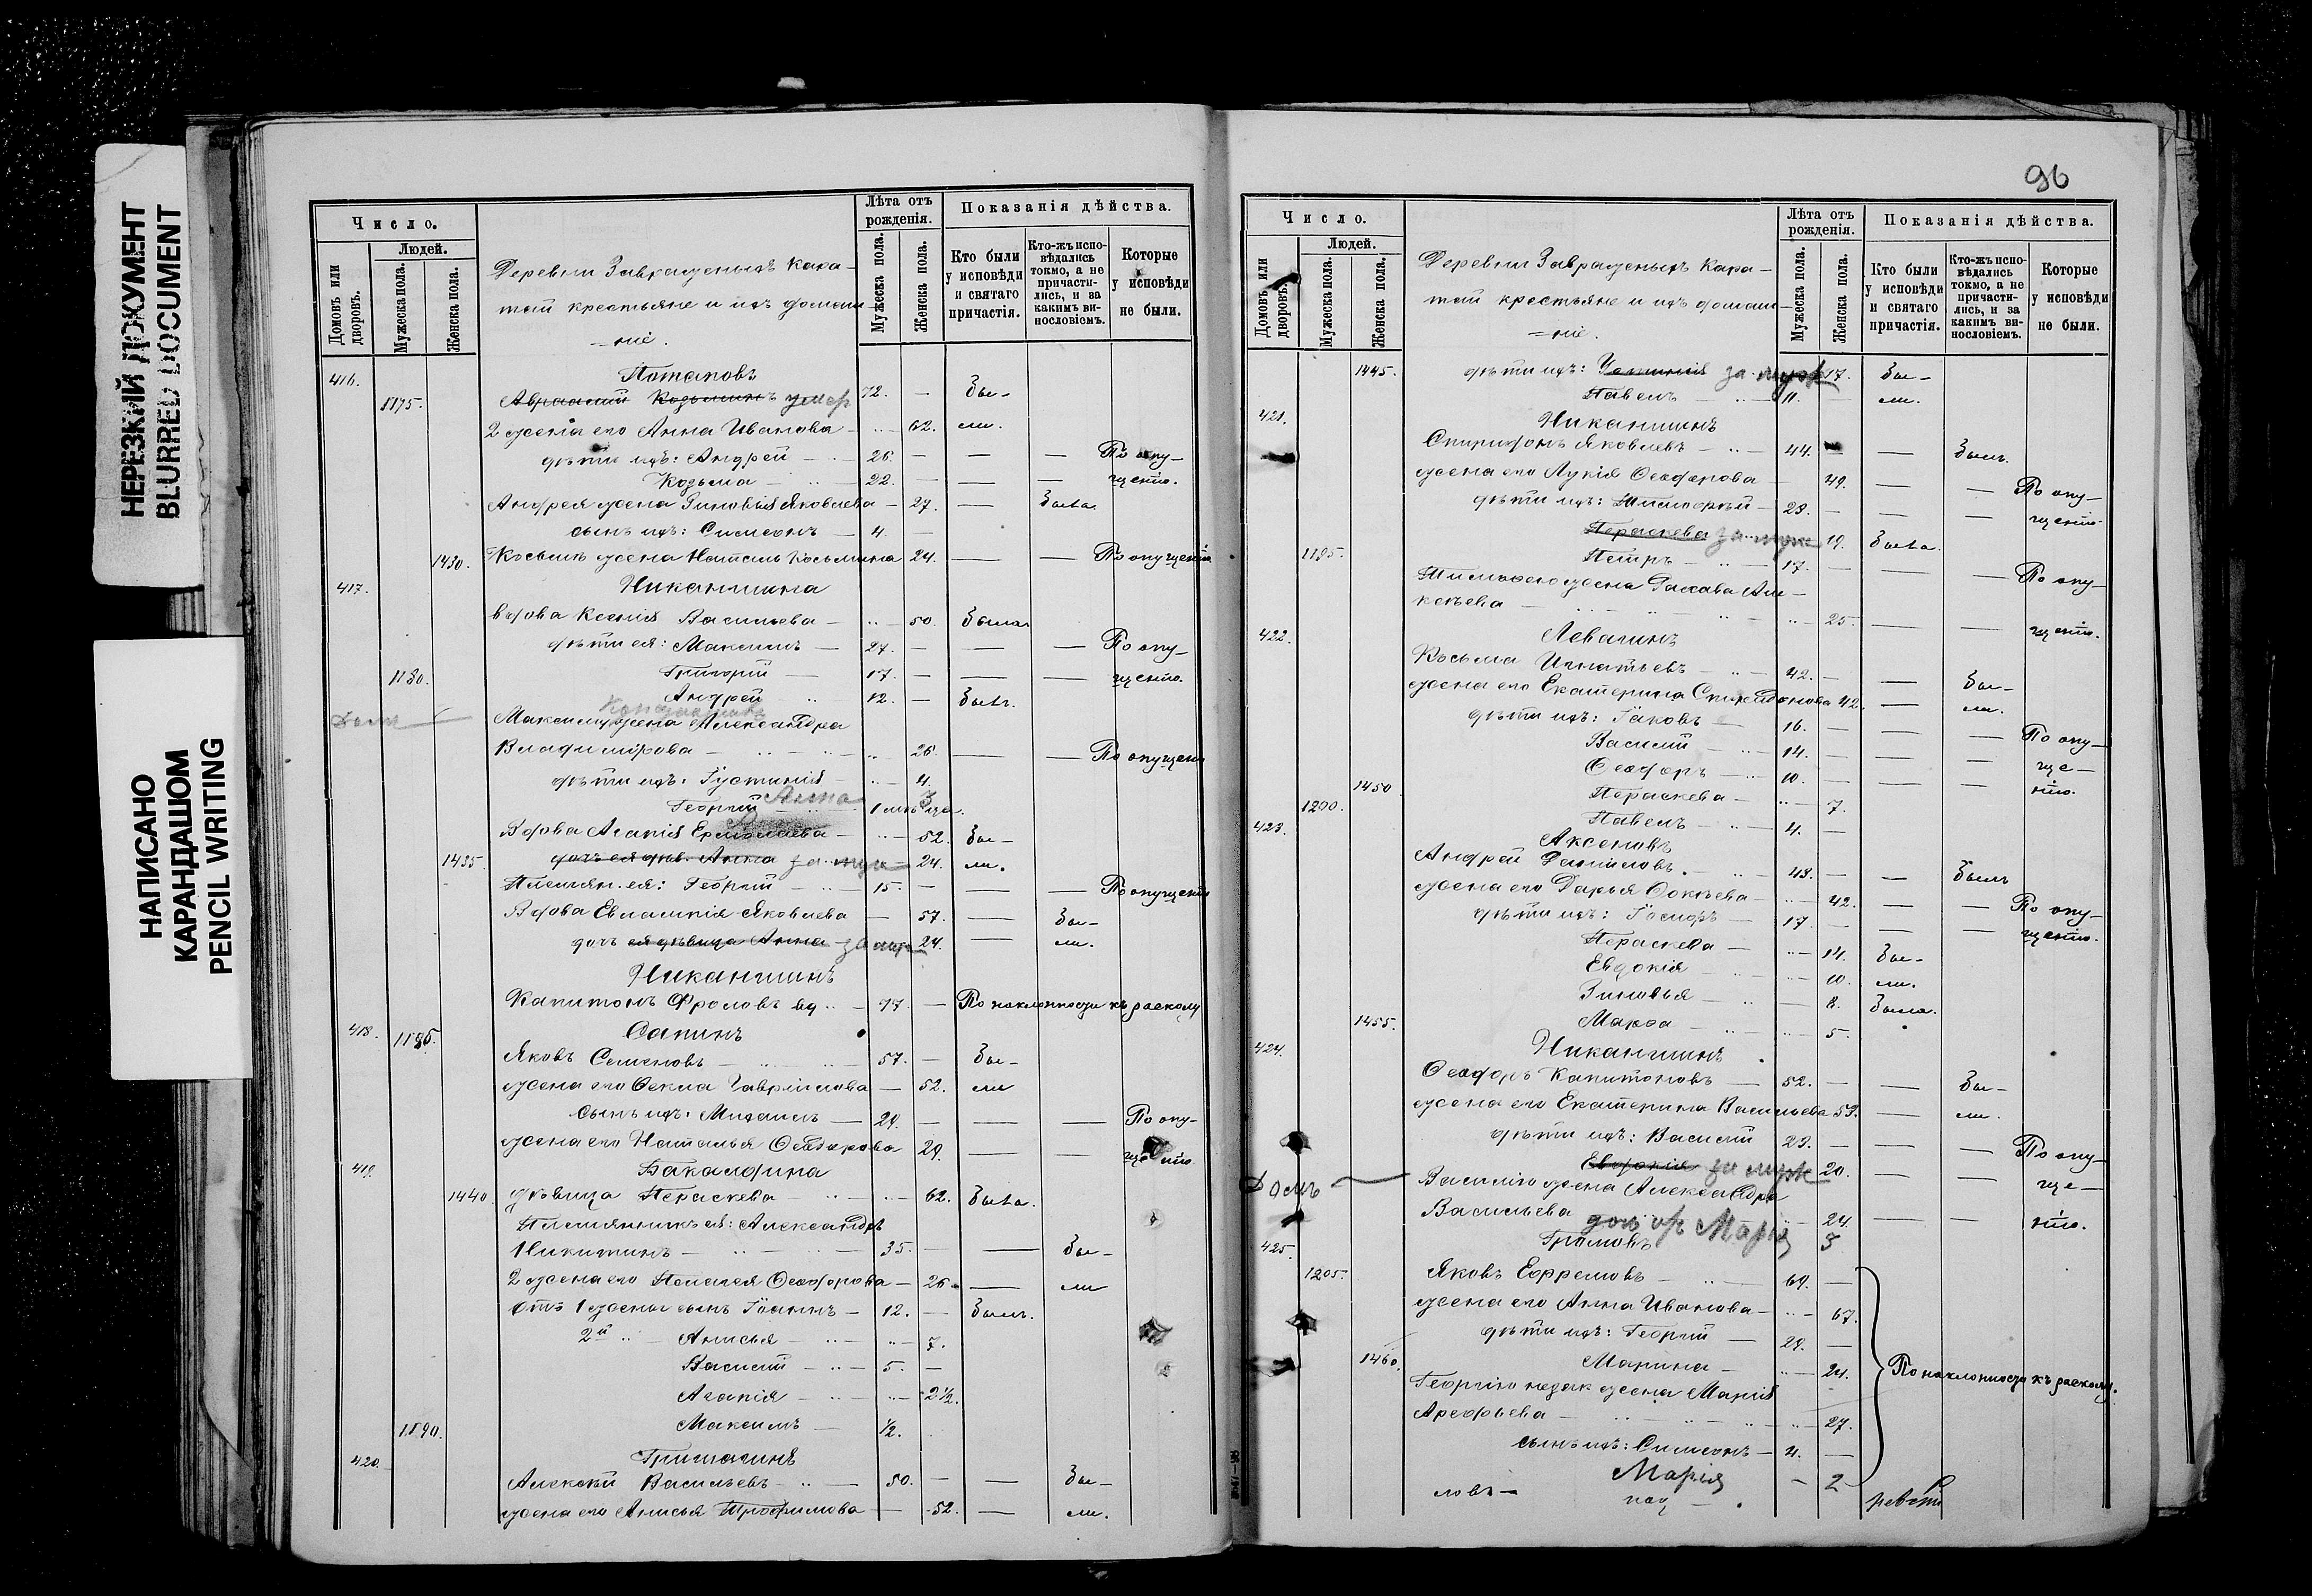 НЕРЕЗКИЙ ДОКУМЕНТ
BLURRED DOCUMENT
НАПИСАНО
КАРАНДАШОМ
PENCIL WRITING
Число.
Домовъ или дворовъ.
Людей.
Мужеска пола.
Женска пола.
Деревни Завражныхъ Кара-
тай крестьяне и ихъ домаш-
=ніе.
Лѣта отъ рожденія.
Мужеска пола.
Женска пола.
Показанія дѣйства.
Кто были у исповѣди и святаго причастія.
Кто-жъ исповѣдались токмо, а не причастились, и за какимъ винословіемъ.
Которые у исповѣди не были.
416. Потаповъ
1175. Авраамій Козьминъ умер 72. — Бы-
2 жена его Анна Иванова — 62. ли.
дѣти ихъ: Андрей — 26. — — — По опу-
Козьма — 22. — — — щенію.
Андрея жена Зиновія Яковлева — 27. — Была
сынъ ихъ: Симеонъ — 4. —
1430. Косьмы жена Наталь Косьмина 24. — — По опущенію
417. Никаншина
вдова Ксенія Васильева — 50. Была
дѣти ея: Максимъ — 27. — — — По опу-
1180. Григорій — 17. — — — щенію.
Андрей 12. — Былъ.
Максиму жена Александра
Владимірова — 26. — — По опущен
дѣти ихъ: Іустинія — 4.
Георгій Анна 3
Вдова Агапія Ермолаева — 52. Бы-
1435. дочь ея дѣв. Анна за муж 24. ли.
Племян. ея: Георгій — 15. — — — По опущенію
Вдова Евлампія Яковлева — 57. — Бы-
дочь ея дѣвица Анна за муж 24. — ли.
Никаншинъ
Капитонъ Фроловъ вд — 77. — По наклонности къ расколу
418. 1185. Сапинъ
Яковъ Семеновъ — 57. — Бы-
жена его Ѳекла Гаврилова — 52. ли
сынъ ихъ: Михаилъ — 29. — — — По опу-
жена его Наталья Ѳедорова 29. — — щенію
419. Бакалдина
1440. дѣвица Параскева — 62. Была.
Племянникъ ея: Александръ
Никитинъ — 35. — Бы-
2 жена его Пелагея Ѳеодорова — 26. — ли
отъ 1 жены сынъ Іоаннъ — 12. — Былъ.
2й — Анисья — 7.
Василій — 5. —
Агапія — 2½.
1190. Максимъ — ½.
420. Гришагинъ
Алексѣй Васильевъ — 50. — — Бы-
жена его Анисья Трофимова — 52. — ли.
96
Число.
Домовъ или дворовъ.
Людей.
Мужеска пола.
Женска пола.
Деревни Завражныхъ Кара-
тай крестьяне и ихъ домаш-
=ніе.
Лѣта отъ рожденія.
Мужеска пола.
Женска пола.
Показанія дѣйства.
Кто были у исповѣди и святаго причастія.
Кто-жъ исповѣдались токмо, а не причастились, и за какимъ винословіемъ.
Которые у исповѣди не были.
1445. дѣти ихъ: за муж 17. Бы-
Павелъ — 11. ли.
421. Никаншинъ
Спиридонъ Яковлевъ — 44. — — Былъ.
жена его Лукія Ѳеодорова 49. — — По опу-
дѣти ихъ: Тимоѳей — 23. — — — щенію.
Параскева за муж 19. Была.
1195. Петръ — 17. — — — По опу-
Тимоѳею жена Глахава Але-
ксѣева — 25. — — щенію.
422. Левагинъ
Косьма Игнатьевъ — 42. — — Бы-
жена его Екатерина Спиридонова 42. — ли.
дѣти ихъ: Іаковъ 16. — — — По опу-
Василій — 14. — — — ще-
Ѳеодоръ — 10. — — — нію.
1450 Параскева — 7.
1200. Павелъ — 4. —
423. Аксеновъ
Андрей Даниловъ. — 43. — — Былъ
жена его Дарья Ѳокѣева — 42. — — По опу-
дѣти ихъ: — 17. — — — щенію.
Параскева — 14. Бы-
Евдокія — 10. ли.
Зиновья — 8. Была.
1455. Марѳа — 5.
424. Никаншинъ
Ѳеодоръ Капитоновъ — 52. — — Бы-
жена его Екатерина Васильева 53. — ли.
дѣти ихъ: Василій 23. — — — По опу-
Евдокія за муж 20. — — ще-
Домъ Василію жена Александра
Васильева 24. — — нію.
дочь их Марія 3
425. Громовъ
1205. Яковъ Ефремовъ — 69. —
жена его Анна Иванова — 67.
дѣти ихъ: Георгій — 29. —
1460. Марина — 24. По наклонности къ расколу.
Георгію незак жена Марія
Арефьева — 27.
сынъ ихъ: Симеонъ — 4. —
Марія — 2
ловъ —